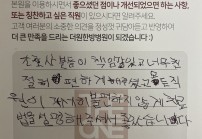 본원을 이용하시면서 좋으셨던 점이나 개선되었으면 하는 사항,
또는 칭찬하고 싶은 직원이 있으시다면 알려주세요.
고객 여러분의 소중한 의견을 정성껏 귀담아듣고 반영하여
더 큰 만족을 드리는 더원한방병원이 되겠습니다:)
간호사분들이 책임감있고 너무친
절해 편하게
분이 제가 불편하지 않게 적응
법을 알려주셔서 좋았습니다.